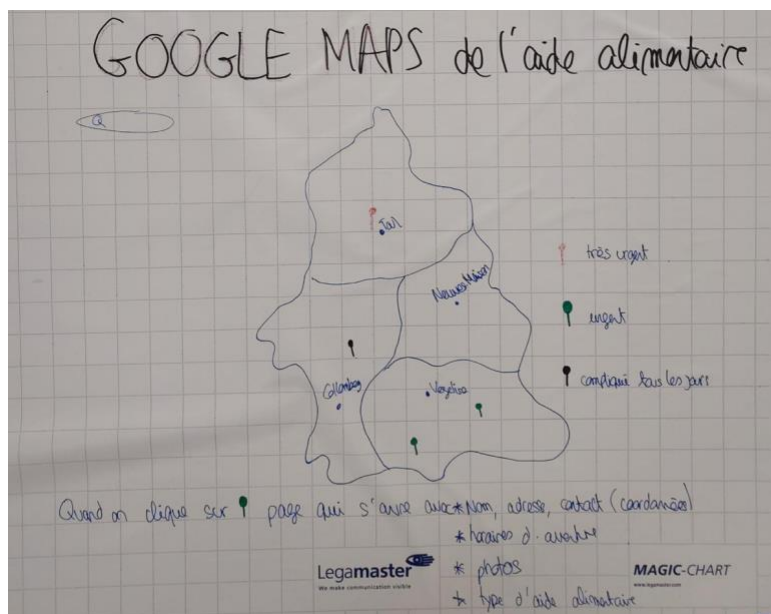 GOOGLE MAPS de l'aide alimentaire
Q
Toul
Neuves Maison
très urgent
urgent
compliqué tous les jours
Colombey
Vézelise
Quand on clique sur page qui s'ouvre avec * Nom, adresse, contact (coordonnées)
* horaires d'ouverture
* photos
* type d'aide alimentaire
Legamaster
We make communication visible
MAGIC-CHART
www.legamaster.com